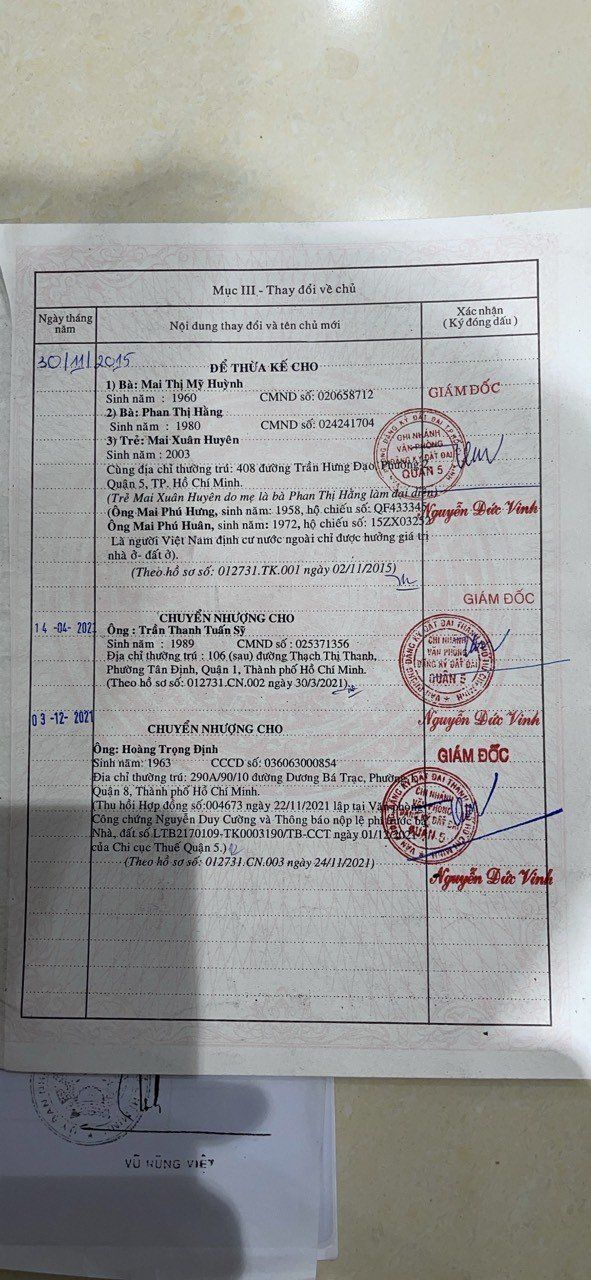 Mục III - Thay đổi về chủ
Ngày tháng năm
Nội dung thay đổi và tên chủ mới
Xác nhận
( Ký đóng dấu )
30/11/2015
ĐỂ THỪA KẾ CHO
1) Bà: Mai Thị Mỹ Huỳnh
Sinh năm : 1960 CMND số: 020658712
2) Bà: Phan Thị Hằng
Sinh năm : 1980 CMND số: 024241704
3) Trẻ: Mai Xuân Huyên
Sinh năm : 2003
Cùng địa chỉ thường trú: 408 đường Trần Hưng Đạo, Phường
Quận 5, TP. Hồ Chí Minh.
(Trẻ Mai Xuân Huyên do mẹ là bà Phan Thị Hằng làm đại diện)
(Ông Mai Phú Hưng, sinh năm: 1958, hộ chiếu số: QF433345
Ông Mai Phú Huân, sinh năm: 1972, hộ chiếu số: 15ZX03252
Là người Việt Nam định cư nước ngoài chỉ được hưởng giá trị
nhà ở- đất ở).
(Theo hồ sơ số: 012731.TK.001 ngày 02/11/2015)
GIÁM ĐỐC
CHI NHÁNH
VĂN PHÒNG
ĐĂNG KÝ ĐẤT ĐAI
QUẬN 5
Nguyễn Đức Vinh
14 -04- 2021
CHUYỂN NHƯỢNG CHO
Ông : Trần Thanh Tuấn Sỹ
Sinh năm : 1989 CMND số : 025371356
Địa chỉ thường trú : 106 (sau) đường Thạch Thị Thanh,
Phường Tân Định, Quận 1, Thành phố Hồ Chí Minh.
(Theo hồ sơ số: 012731.CN.002 ngày 30/3/2021)
GIÁM ĐỐC
CHI NHÁNH
VĂN PHÒNG
ĐĂNG KÝ ĐẤT ĐAI
QUẬN 5
Nguyễn Đức Vinh
03 -12- 2021
CHUYỂN NHƯỢNG CHO
Ông: Hoàng Trọng Định
Sinh năm: 1963 CCCD số: 036063000854
Địa chỉ thường trú: 290A/90/10 đường Dương Bá Trạc, Phường
Quận 8, Thành phố Hồ Chí Minh.
(Thu hồi Hợp đồng số:004673 ngày 22/11/2021 lập tại Văn phòng
Công chứng Nguyễn Duy Cường và Thông báo nộp lệ phí trước bạ
Nhà, đất số LTB2170109-TK0003190/TB-CCT ngày 01/12/2021
của Chi cục Thuế Quận 5.)
(Theo hồ sơ số: 012731.CN.003 ngày 24/11/2021)
GIÁM ĐỐC
CHI NHÁNH
VĂN PHÒNG
ĐĂNG KÝ ĐẤT ĐAI
QUẬN 5
Nguyễn Đức Vinh
VŨ HÙNG VIỆT